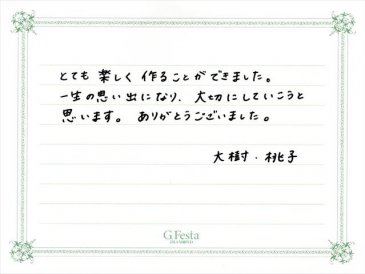 とても楽しく作ることができました。
一生の思い出になり、大切にしていこうと
思います。ありがとうございました。
大樹・桃子
G.Festa
DIAMOND